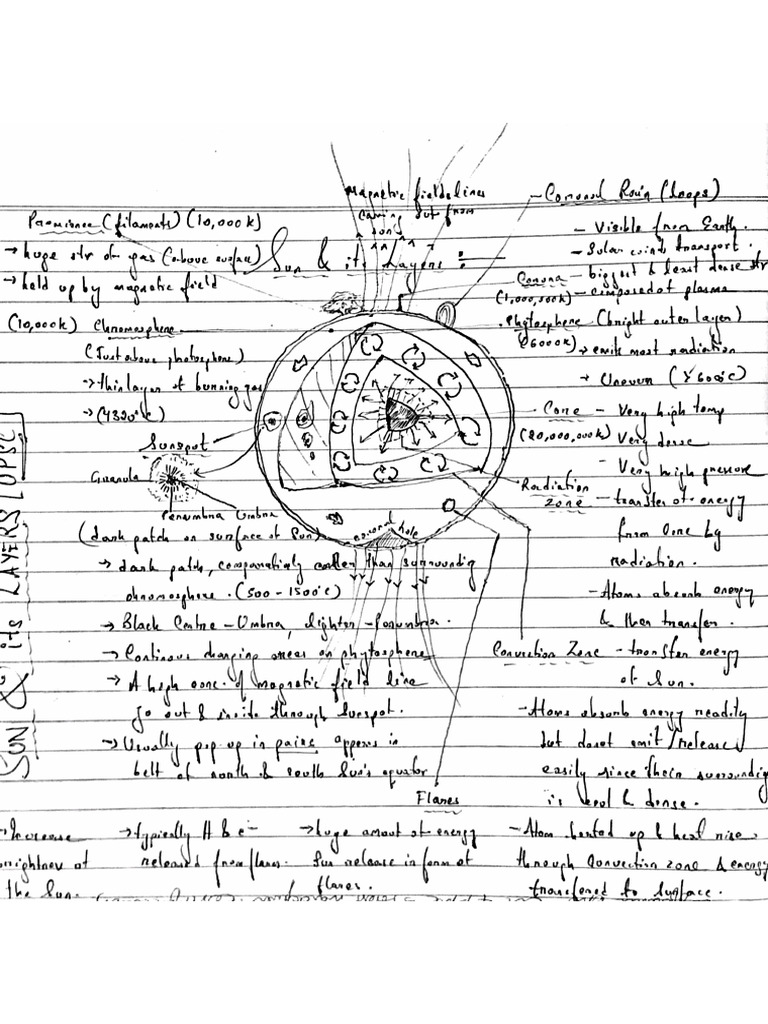 Magnetic field lines
coming out from
sun
Sun & its Layers :-
Prominence (filaments) (10,000K)
→ huge str of gas (above surface)
→ held up by magnetic field
(10,000K) Chromosphere
(Just above photosphere)
→ thin layer of burning gas
→ (4320°C)
Sunspot
Granula
Penumbra Umbra
(dark patch on surface of Sun)
→ dark patch, comparatively cooler than surrounding
chromosphere. (500-1500°C)
→ Black Centre - Umbra, lighter - Penumbra.
→ Continous changing areas on phytosphere
→ A high conc. of magnetic field line
go out & inside through Sunspot.
→ Usually pop up in pairs appears in
belt of north & south Sun's equator
coronal hole
- Coronal Rain (Loops)
- Visible from Earth.
- Solar winds transport.
Corona - biggest & least dense str
(1,000,500K) - composed of plasma
Phytosphere (bright outer layer)
(6000K) → emits most radiation
→ Uneven
Core - Very high temp
(20,000,000K) Very dense
- Very high pressure
Radiation
Zone - transfer of energy
from Core by
radiation.
- Atoms absorb energy
& then transfer.
Convection Zone - transfer energy
of Sun.
- Atoms absorb energy readily
but donot emit/release
easily since their surrounding
is cool & dense.
- Atom heated up & heat rise
through convection zone & energy
transfered to surface.
Flares
→ Increase
brightnes of
the Sun.
→ typically H & e-
released from flares.
→ huge amout of energy
Sun release in form of
flares.
SUN & its LAYERS